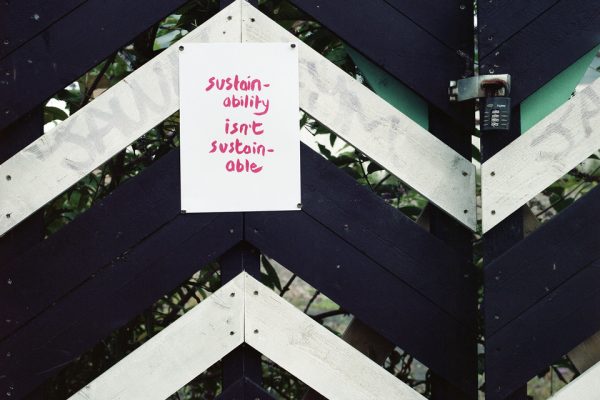 sustain-
ability
isn't
sustain-
able